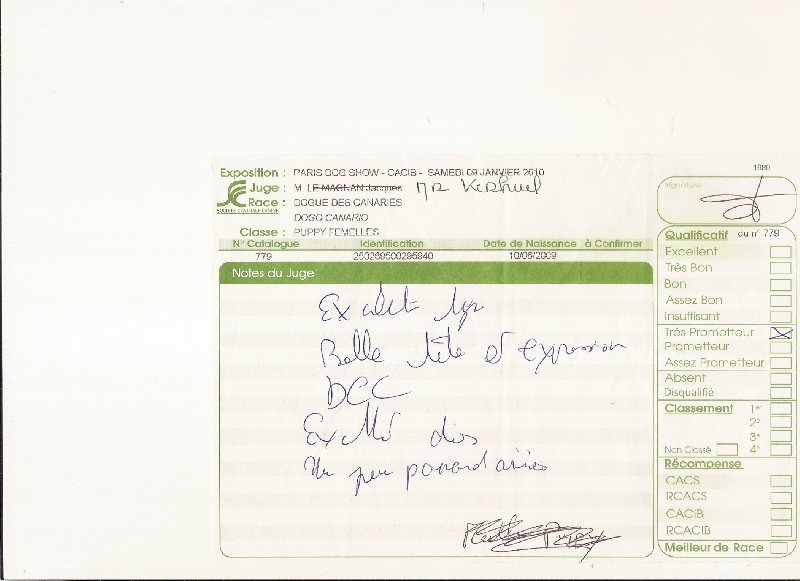 1980
Exposition : PARIS DOG SHOW - CACIB - SAMEDI 09 JANVIER 2010
Juge : M. LE MAGNAN Jacques Mr Kerhuel
SOCIETE CENTRALE CANINE
Race : DOGUE DES CANARIES
DOGO CANARIO
Classe : PUPPY FEMELLES
N° Catalogue Identification Date de Naissance à Confirmer
779 250269500295940 10/06/2009
Notes du Juge
Excelet type
Belle tête et expression
DCC
Ex dos
Un peu panard arrière
Signature :
Qualificatif du n° 779
Excellent
Très Bon
Bon
Assez Bon
Insuffisant
Très Prometteur X
Prometteur
Assez Prometteur
Absent
Disqualifié
Classement 1er
2e
3e
Non Classé 4e
Récompense
CACS
RCACS
CACIB
RCACIB
Meilleur de Race